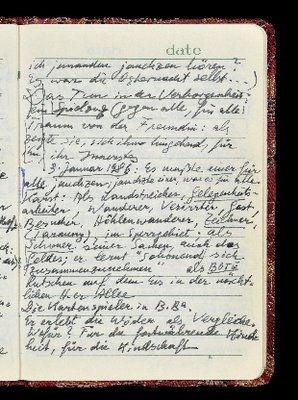 date
ich jemanden jauchzen hören?
Es war die Osternacht selbst...)
Das Tun in der Verborgenheit:
ein Spielzug (gegen alle, für alle)
Traum von der Fremden: als
sie, sich ihm hingebend, für
ihr Innerstes
3. Januar 1986: Es müßte einer für
alle jauchzen; jauchzte einer, war es für alle
Kunst: Als Landstreicher, Gelegenheits-
arbeiter, Wanderer, Verirrter, Gast,
Bewohner, Höhlenwanderer, Zeichner,
im Sperrgebiet: als
seiner Sachen, auch des
Geldes; er lernt "schonend sich
zusammenzunehmen" als Bote
Rutschen auf dem Eis in der nächt-
lichen Allee
Die Kartenspieler in B.Ba.
Er erlebt die als Vergleiche.
Wofür? Für die fortwährende Kind-
heit, für die Kindschaft